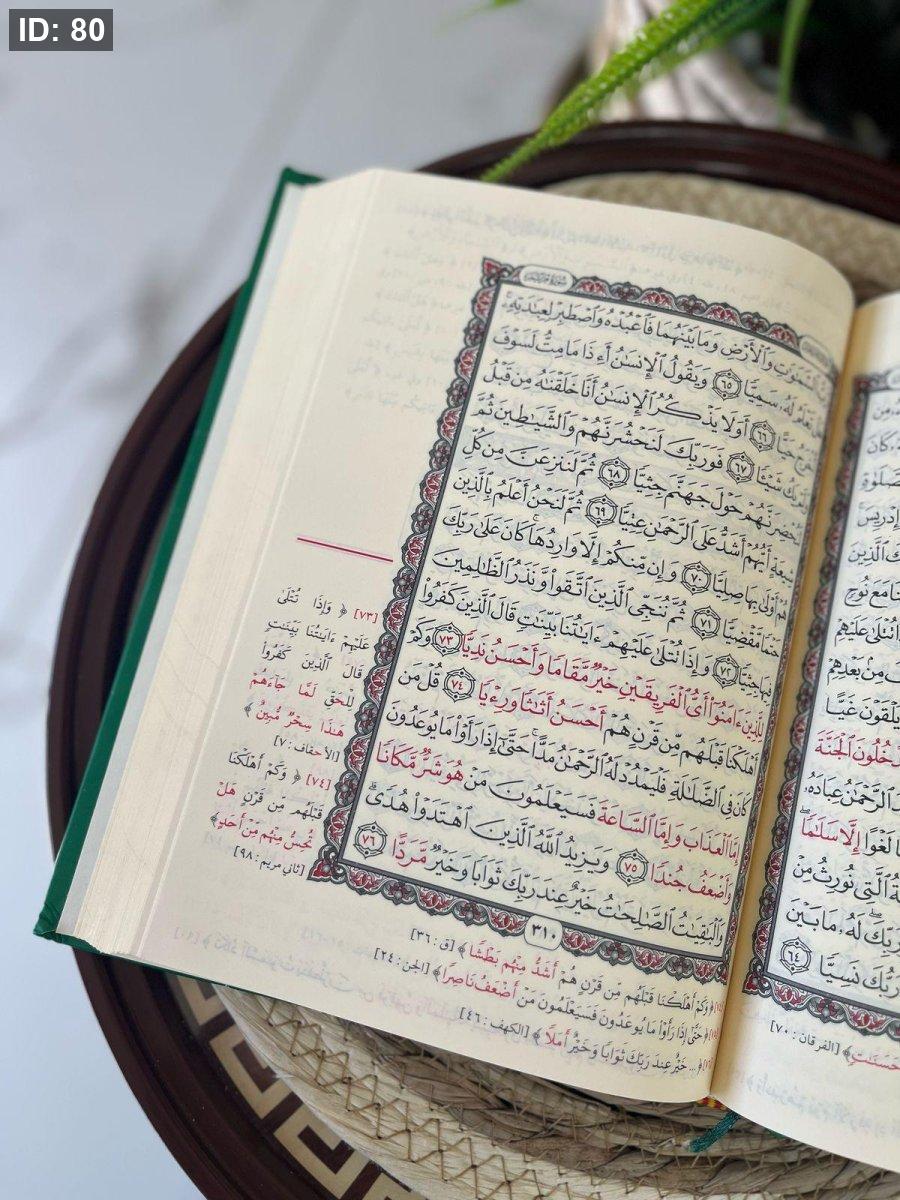 ID: 80
سُورَةُ مَرْيَمَ
ٱلسَّمَٰوَٰتِ وَٱلْأَرْضِ وَمَا بَيْنَهُمَا فَٱعْبُدْهُ وَٱصْطَبِرْ لِعِبَٰدَتِهِۦۚ
تَعْلَمُ لَهُۥ سَمِيًّا ٦٥ وَيَقُولُ ٱلْإِنسَٰنُ أَءِذَا مَا مِتُّ لَسَوْفَ
أُخْرَجُ حَيًّا ٦٦ أَوَلَا يَذْكُرُ ٱلْإِنسَٰنُ أَنَّا خَلَقْنَٰهُ مِن قَبْلُ
يَكُ شَيْـًٔا ٦٧ فَوَرَبِّكَ لَنَحْشُرَنَّهُمْ وَٱلشَّيَٰطِينَ ثُمَّ
لَنُحْضِرَنَّهُمْ حَوْلَ جَهَنَّمَ جِثِيًّا ٦٨ ثُمَّ لَنَنزِعَنَّ مِن كُلِّ
شِيعَةٍ أَيُّهُمْ أَشَدُّ عَلَى ٱلرَّحْمَٰنِ عِتِيًّا ٦٩ ثُمَّ لَنَحْنُ أَعْلَمُ بِٱلَّذِينَ
هُمْ أَوْلَىٰ بِهَا صِلِيًّا ٧٠ وَإِن مِّنكُمْ إِلَّا وَارِدُهَاۚ كَانَ عَلَىٰ رَبِّكَ
حَتْمًا مَّقْضِيًّا ٧١ ثُمَّ نُنَجِّى ٱلَّذِينَ ٱتَّقَوا۟ وَّنَذَرُ ٱلظَّٰلِمِينَ
فِيهَا جِثِيًّا ٧٢ وَإِذَا تُتْلَىٰ عَلَيْهِمْ ءَايَٰتُنَا بَيِّنَٰتٍ قَالَ ٱلَّذِينَ كَفَرُوا۟
لِلَّذِينَ ءَامَنُوٓا۟ أَىُّ ٱلْفَرِيقَيْنِ خَيْرٌ مَّقَامًا وَأَحْسَنُ نَدِيًّا ٧٣ وَكَمْ
أَهْلَكْنَا قَبْلَهُم مِّن قَرْنٍ هُمْ أَحْسَنُ أَثَٰثًا وَرِءْيًا ٧٤ قُلْ مَن
كَانَ فِى ٱلضَّلَٰلَةِ فَلْيَمْدُدْ لَهُ ٱلرَّحْمَٰنُ مَدًّاۚ حَتَّىٰٓ إِذَا رَأَوْا۟ مَا يُوعَدُونَ
إِمَّا ٱلْعَذَابَ وَإِمَّا ٱلسَّاعَةَ فَسَيَعْلَمُونَ مَنْ هُوَ شَرٌّ مَّكَانًا
وَأَضْعَفُ جُندًا ٧٥ وَيَزِيدُ ٱللَّهُ ٱلَّذِينَ ٱهْتَدَوْا۟ هُدًىۗ
وَٱلْبَٰقِيَٰتُ ٱلصَّٰلِحَٰتُ خَيْرٌ عِندَ رَبِّكَ ثَوَابًا وَخَيْرٌ مَّرَدًّا ٧٦
٣١٠
[٧٣] ﴿ وَإِذَا تُتْلَىٰ
عَلَيْهِمْ ءَايَٰتُنَا بَيِّنَٰتٍ
قَالَ ٱلَّذِينَ كَفَرُوا۟
لِلْحَقِّ لَمَّا جَآءَهُمْ
هَٰذَا سِحْرٌ مُّبِينٌ ﴾
[الأحقاف: ٧]
[٧٤] ﴿ وَكَمْ أَهْلَكْنَا
قَبْلَهُم مِّن قَرْنٍ هَلْ
تُحِسُّ مِنْهُم مِّنْ أَحَدٍ﴾
[ثاني مريم: ٩٨]
﴿ وَكَمْ أَهْلَكْنَا قَبْلَهُم مِّن قَرْنٍ هُمْ أَشَدُّ مِنْهُم بَطْشًا ﴾ [ق: ٣٦]
﴿ حَتَّىٰٓ إِذَا رَأَوْا۟ مَا يُوعَدُونَ فَسَيَعْلَمُونَ مَنْ أَضْعَفُ نَاصِرًا ﴾ [الجن: ٢٤]
﴿ ... خَيْرٌ عِندَ رَبِّكَ ثَوَابًا وَخَيْرٌ أَمَلًا ﴾ [الكهف: ٤٦]
كَانَ
إِدْرِيسَ
ٱلَّذِينَ
مَعَ نُوحٍ
تُتْلَىٰ عَلَيْهِمْ
مِنۢ بَعْدِهِمْ
يَلْقَوْنَ غَيًّا
يَدْخُلُونَ ٱلْجَنَّةَ
ٱلرَّحْمَٰنُ عِبَادَهُۥ
لَغْوًا إِلَّا سَلَٰمًا
ٱلَّتِى نُورِثُ مِنْ
رَبِّكَ لَهُۥ مَا بَيْنَ
رَبُّكَ نَسِيًّا ٦٤
حَسَنَٰتٍ﴾ [الفرقان: ٧٠]